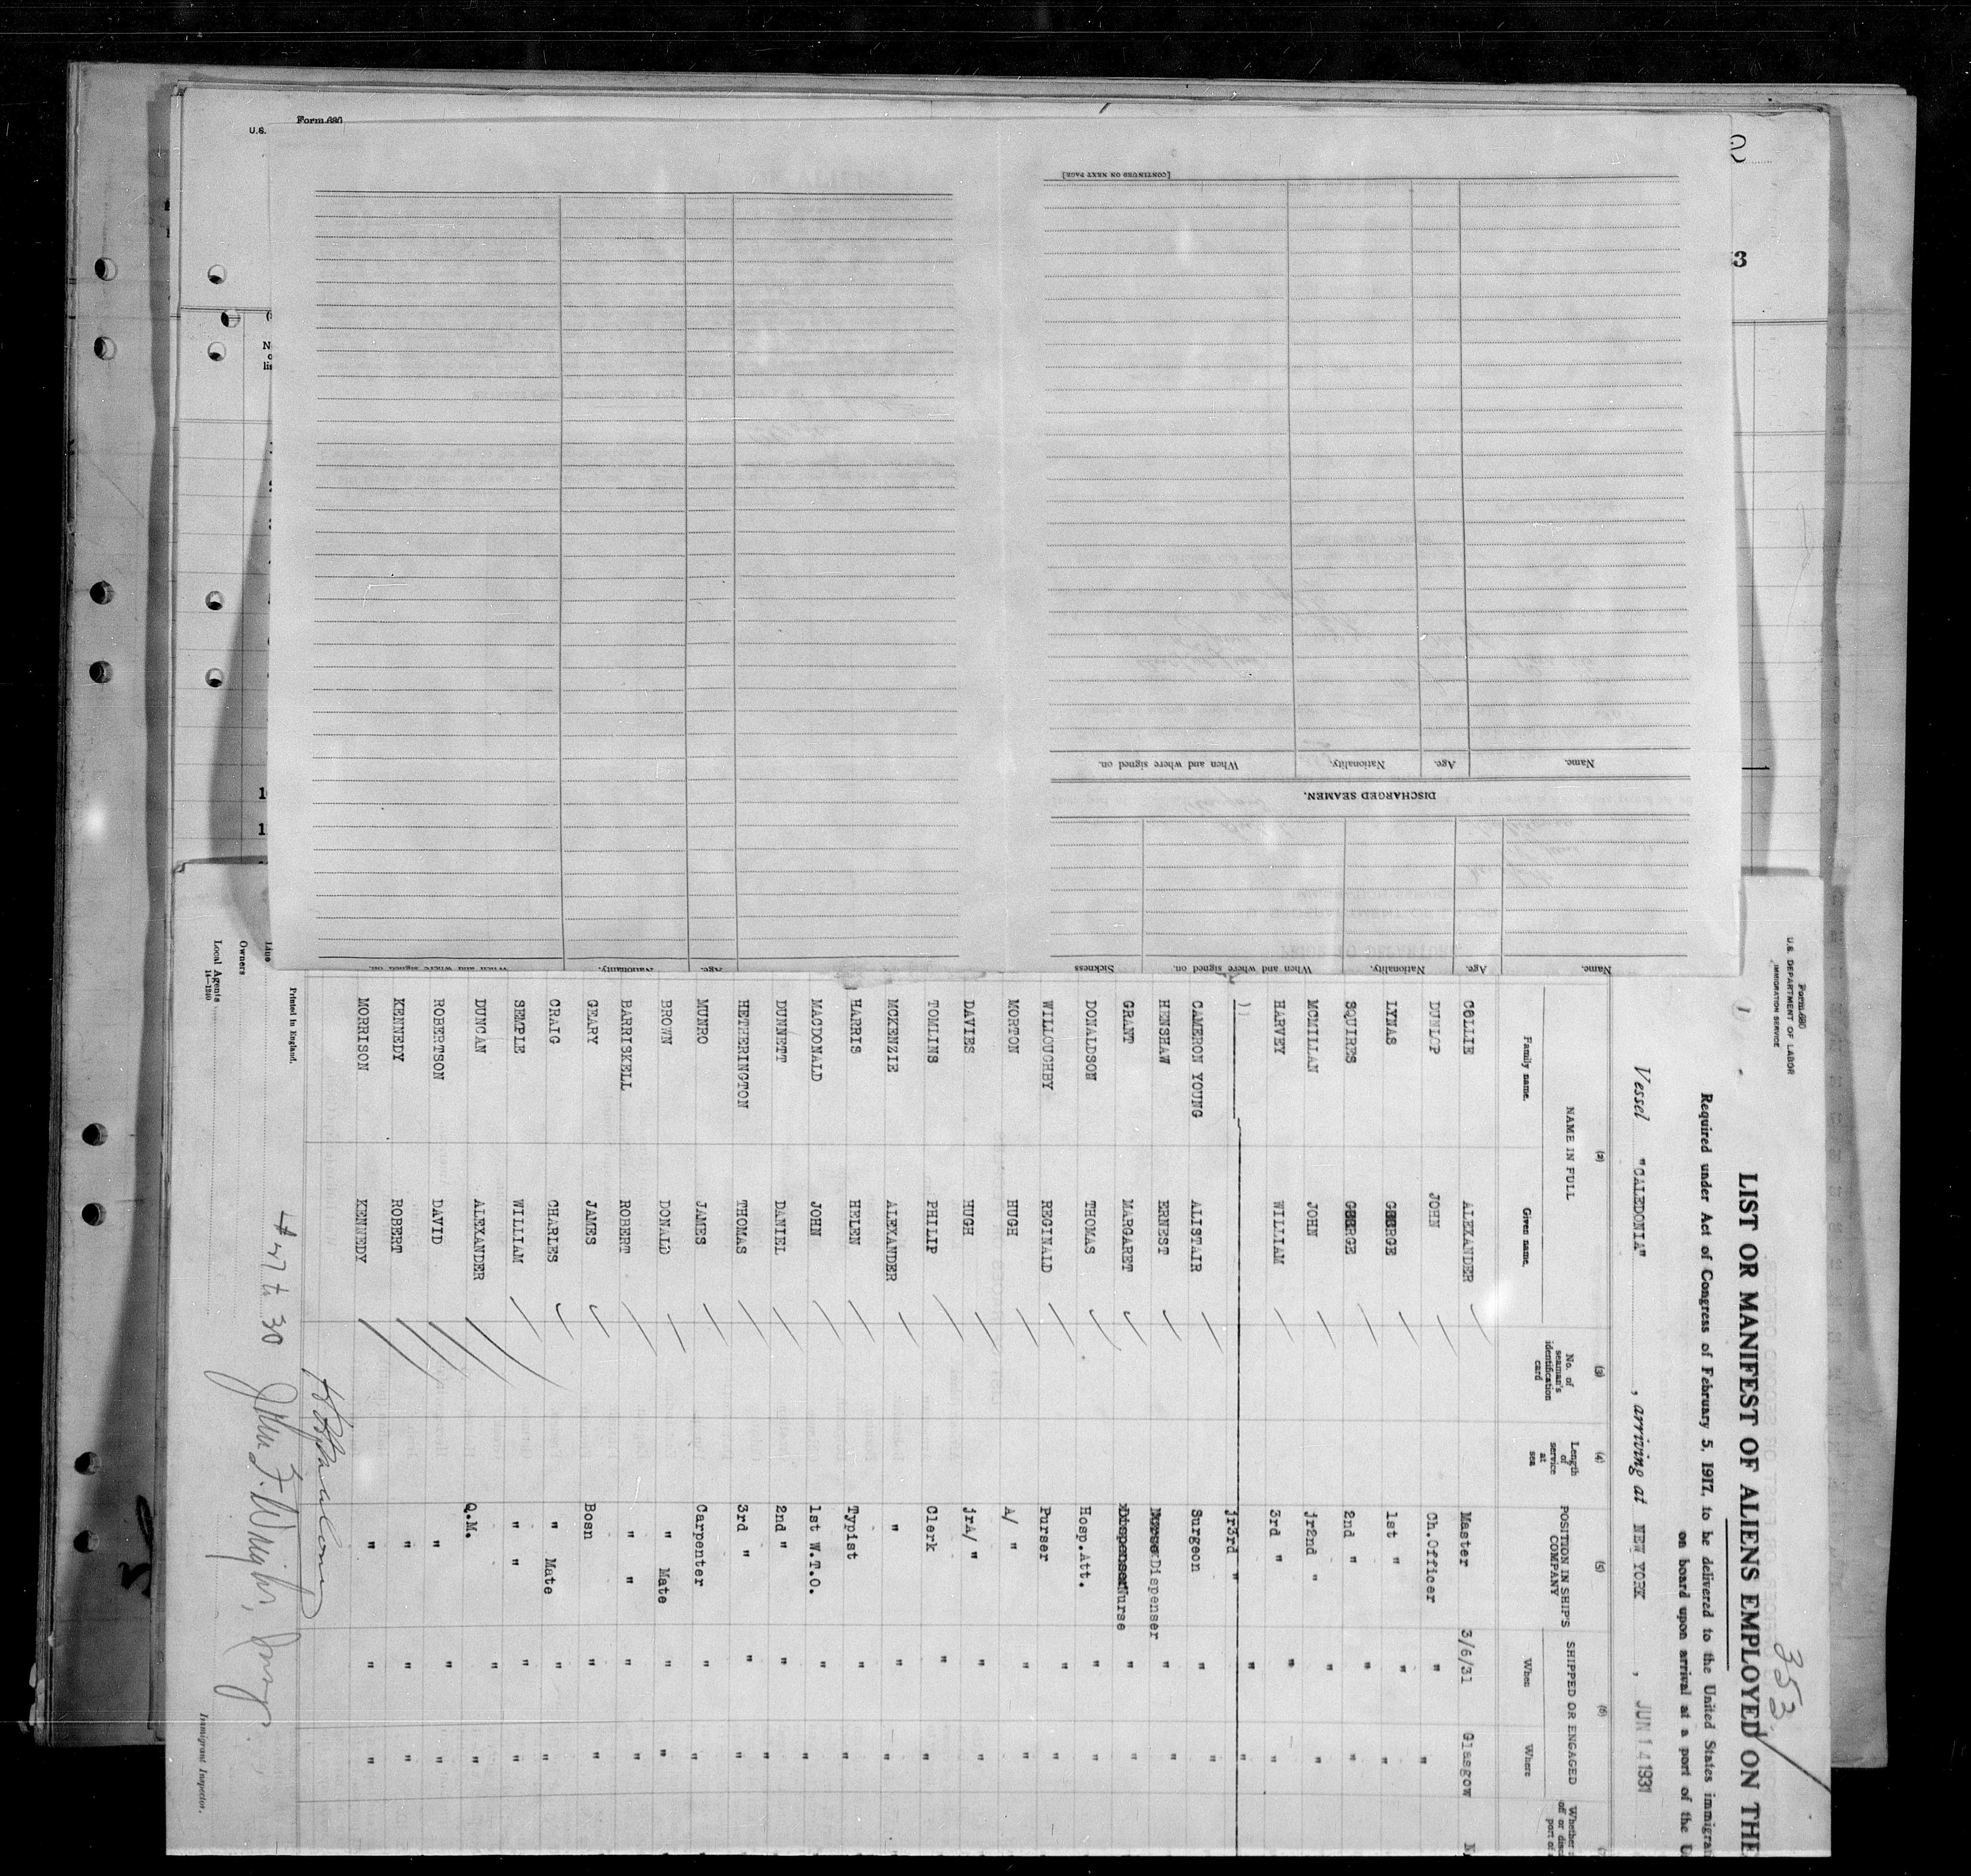 Form 680
U.S.
3
[CONTINUED ON NEXT PAGE]
Name. Age. Nationality. When and where signed on.
DISCHARGED SEAMEN.
Name. Age. Nationality. When and where signed on. Sickness
Age. Nationality. When and where signed on.
Form 680
U.S. DEPARTMENT OF LABOR
IMMIGRATION SERVICE
353
1
LIST OR MANIFEST OF ALIENS EMPLOYED ON THE
Required under Act of Congress of February 5, 1917, to be delivered to the United States immigra
on board upon arrival at a port of the U
Vessel "CALEDONIA", arriving at NEW YORK, JUN 14 1931
(2) (3) (4) (5) (6)
NAME IN FULL No. of seaman's identification card Length of service at sea POSITION IN SHIP'S COMPANY SHIPPED OR ENGAGED
Family name. Given name. When Where
COLLIE ALEXANDER Master 3/6/31 Glasgow
DUNLOP JOHN Ch.Officer " "
LYNAS GEORGE 1st " " "
SQUIRES GEORGE 2nd " " "
MCMILLAN JOHN jr2nd " " "
HARVEY WILLIAM 3rd " " "
jr3rd " " "
CAMERON YOUNG ALISTAIR Surgeon " "
HENSHAW ERNEST Dispenser " "
GRANT MARGARET Nurse " "
DONALDSON THOMAS Hosp.Att. " "
WILLOUGHBY REGINALD Purser " "
MORTON HUGH A/ " " "
DAVIES HUGH jrA/ " " "
TOMLINS PHILIP Clerk " "
MCKENZIE ALEXANDER " " "
HARRIS HELEN Typist " "
MACDONALD JOHN 1st W.T.O. " "
DUNNETT DANIEL 2nd " " "
HETHERINGTON THOMAS 3rd " " "
MUNRO JAMES Carpenter " "
BROWN DONALD " Mate " "
BARRISKELL ROBERT " " " "
GEARY JAMES Bosn " "
CRAIG CHARLES " Mate " "
SEMPLE WILLIAM " " " "
DUNCAN ALEXANDER Q.M. " "
ROBERTSON DAVID " " "
KENNEDY ROBERT " " "
MORRISON KENNEDY " " "
Printed in England.
Line
Owners
Local Agents
14—1240
30
Immigrant Inspector.